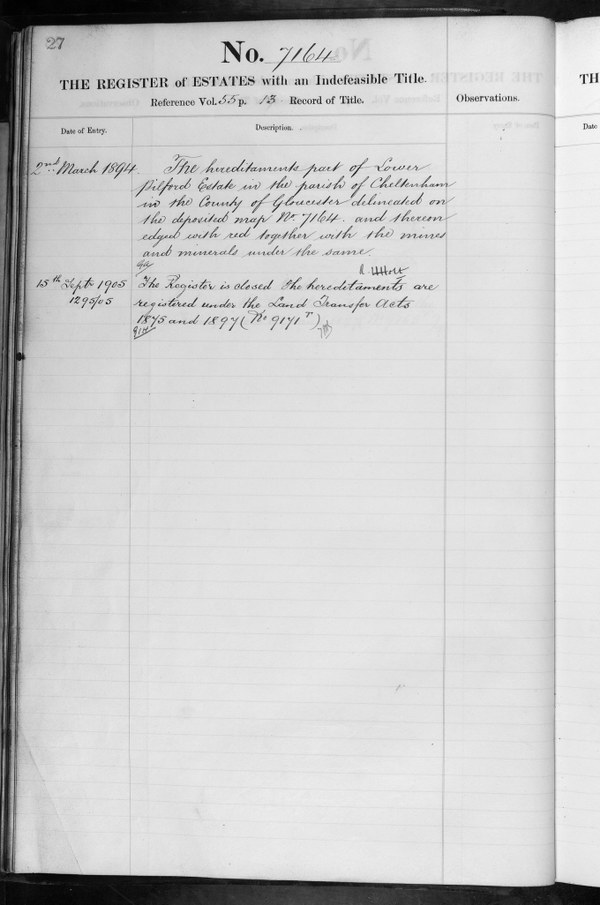 27
No. 7164
THE REGISTER of ESTATES with an Indefeasible Title.
Reference Vol. 55 p. 13 Record of Title.
Observations.
Date of Entry.
Description.
2nd March 1894
The hereditaments part of Lower
Pilford Estate in the parish of Cheltenham
in the County of Gloucester delineated on
the deposited map No. 7164. and thereon
edged with red together with the mines
and minerals under the same.
R. H. Holt
15th Septr 1905
1295/05
The Register is closed The hereditaments are
registered under the Land Transfer Acts
1875 and 1897 (No 9171 T)
TH
Date